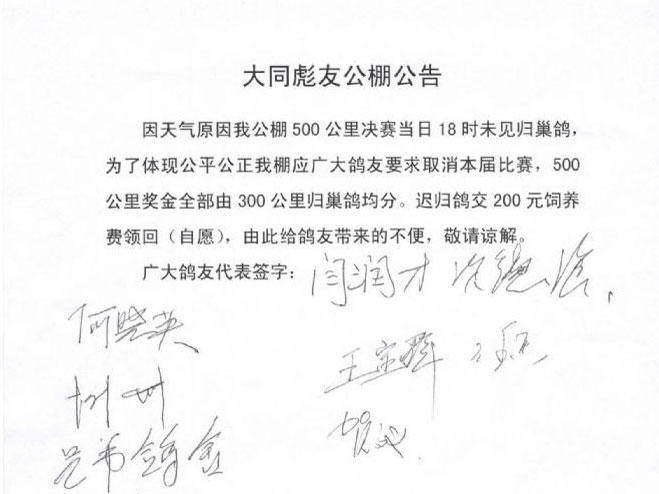 大同彪友公棚公告
因天气原因我公棚500公里决赛当日18时未见归巢鸽，
为了体现公平公正我棚应广大鸽友要求取消本届比赛，500
公里奖金全部由300公里归巢鸽均分。迟归鸽交200元饲养
费领回（自愿），由此给鸽友带来的不便，敬请谅解。
广大鸽友代表签字：闫润才
何晓英
王宗辉
兄弟鸽舍